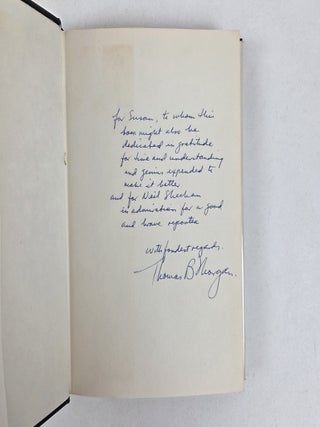 for Susan, to whom this
book might also be
dedicated in gratitude
for time and understanding
and genius expended to
make it better
and for Neil Sheehan
in admiration for a good
and brave reporter
with fondest regards,
Thomas B Morgan.